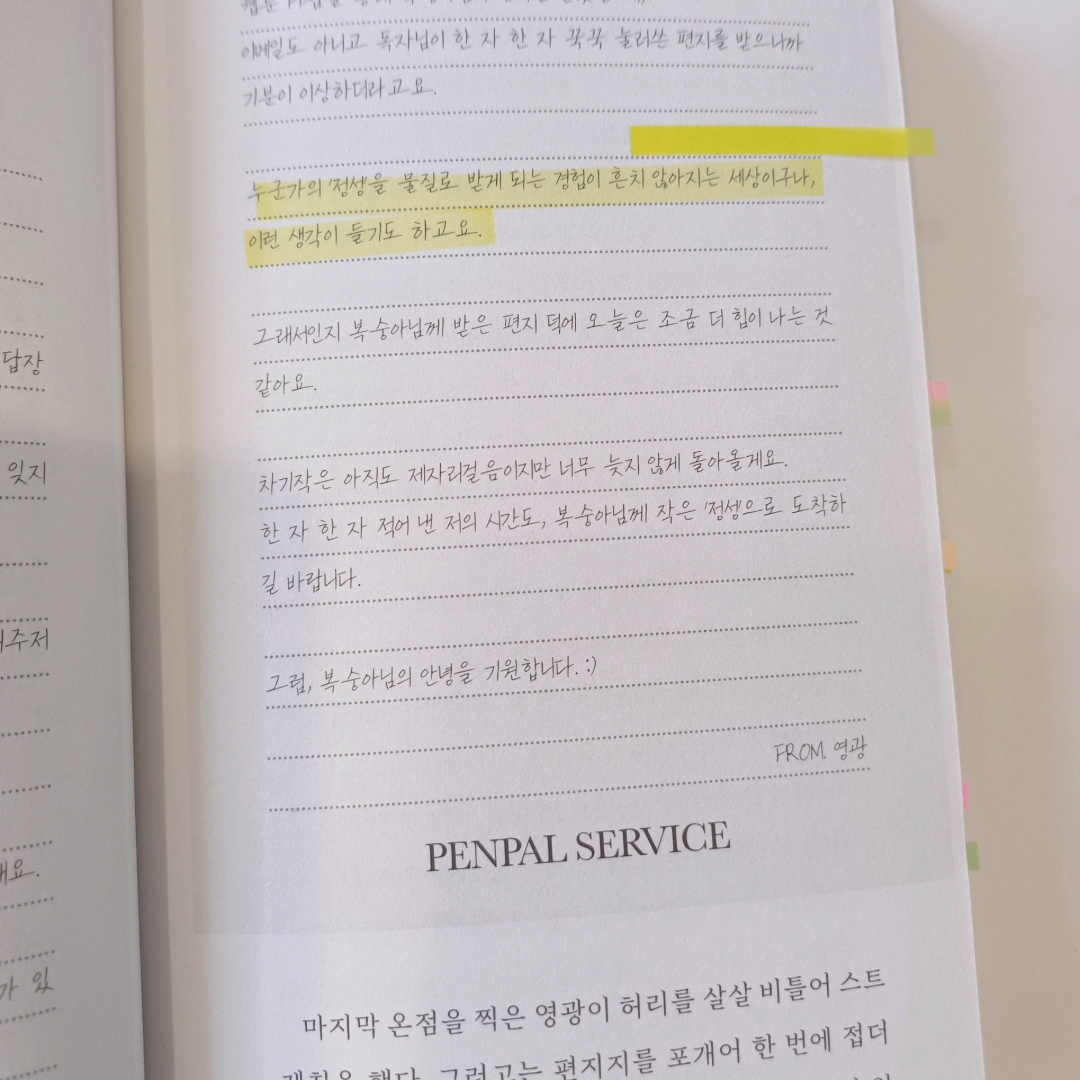 답장
잊지
주저
요.
가 있
이메일도 아니고 독자님이 한 자 한 자 꾹꾹 눌러쓴 편지를 받으니까
기분이 이상하더라고요.
누군가의 '정성'을 물질로 받게 되는 경험이 흔치 않아지는 세상이구나,
이런 생각이 들기도 하고요.
그래서인지 복숭아님께 받은 편지 덕에 오늘은 조금 더 힘이 나는 것
같아요.
차기작은 아직도 제자리걸음이지만 너무 늦지 않게 돌아올게요.
한 자 한 자 적어 낸 저의 시간도, 복숭아님께 작은 '정성'으로 도착하
길 바랍니다.
그럼, 복숭아님의 안녕을 기원합니다. :)
FROM. 영광
PENPAL SERVICE
마지막 온점을 찍은 영광이 허리를 살살 비틀어 스트
레칭을 했다. 그러고는 편지지를 포개어 한 번에 접더